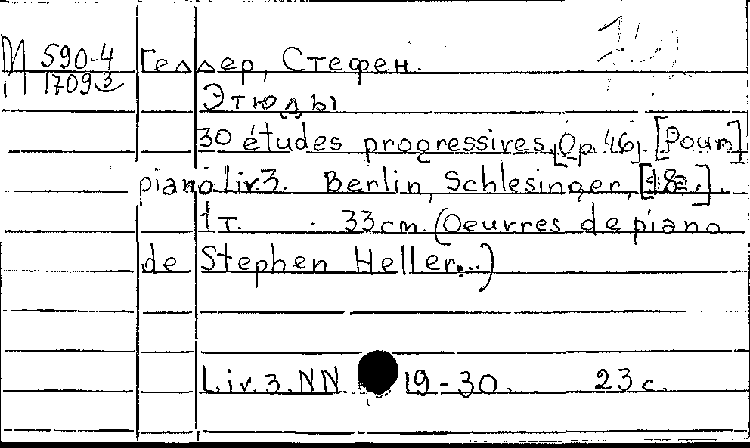 И 590-4 Геллер, Стефен.
1709
Этюды
30 études progressives, Op. 46. [Pour]
piano Liv. 3. Berlin, Schlesinger, [18..].
1 т. 33 cm. (Oeuvres de piano
de Stephen Heller...)
Liv. 3. NN 19-30. 23 с.